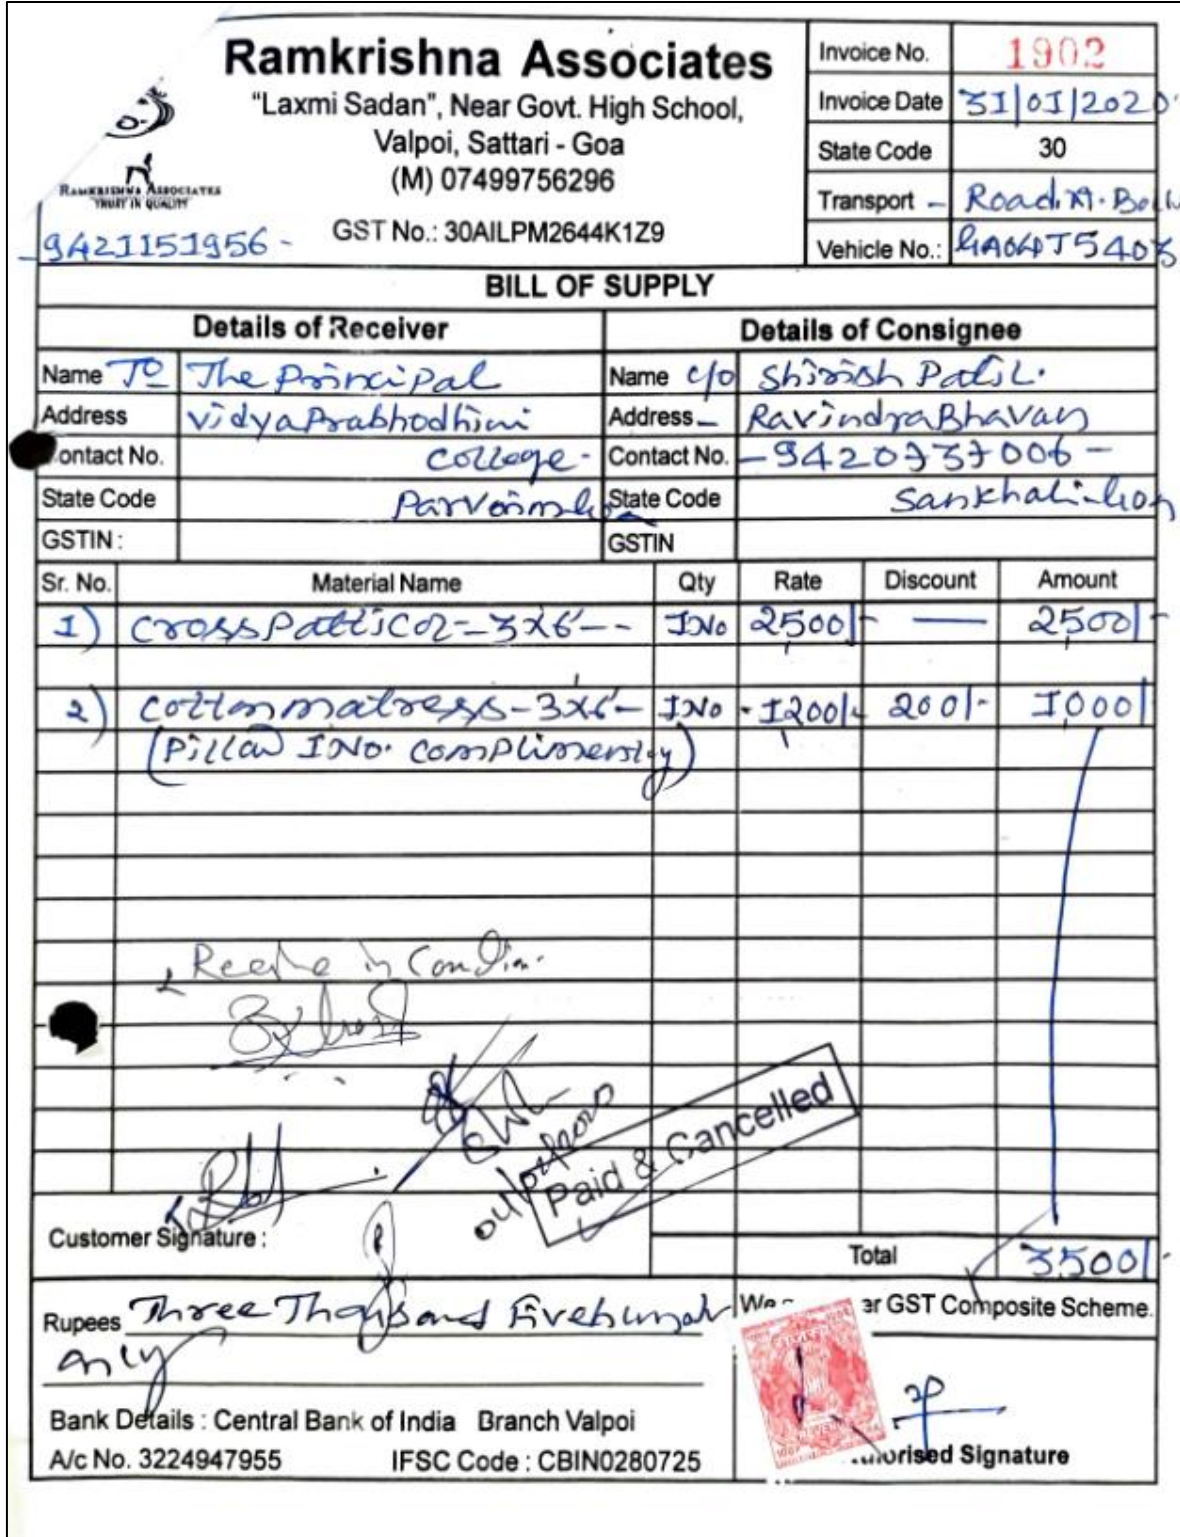 Ramkrishna Associates
"Laxmi Sadan", Near Govt. High School,
Valpoi, Sattari - Goa
(M) 07499756296
GST No.: 30AILPM2644K1Z9
RAMKRISHNA ASSOCIATES
TRUST IN QUALITY
9421151956 -
Invoice No. 1902
Invoice Date 31/01/2020
State Code 30
Transport - Road.
Vehicle No.: GA04T5403
BILL OF SUPPLY
Details of Receiver Details of Consignee
Name To The Principal Name c/o Shirish Patil.
Address Vidya Prabhodhini Address - Ravindra Bhavan
Contact No. College - Contact No. - 9420737006 -
State Code State Code Sankhali-Goa
GSTIN : GSTIN
Sr. No. Material Name Qty Rate Discount Amount
1) Cross Patti Cot - 3x6 - - 1No 2500/- — 2500/-
2) Cotton matress - 3x6 - 1No 1200/- 200/- 1000/
(Pillow 1No. complimentry)
in
Paid & Cancelled
Customer Signature :
Total 3500/-
Rupees Three Thousand Five
only
er GST Composite Scheme.
Bank Details : Central Bank of India Branch Valpoi
A/c No. 3224947955 IFSC Code : CBIN0280725
Signature